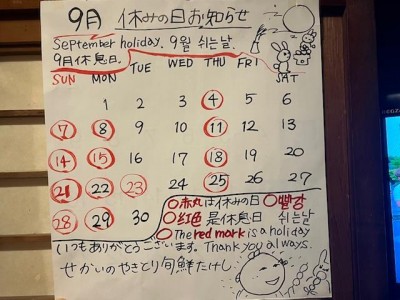 9月 休みの日お知らせ
September holiday. 9월 쉬는날.
9月休息日.
SUN MON TUE WED THU FRI SAT
1 2 3 4 5 6
7 8 9 10 11 12 13
14 15 16 17 18 19 20
21 22 23 24 25 26 27
28 29 30
○赤丸は休みの日 ○빨강
○红色 是休息日 쉬는날
○The red mark is a holiday
いつもありがとうございます。Thank you always.
せかいのやきとり旬鮮たけし